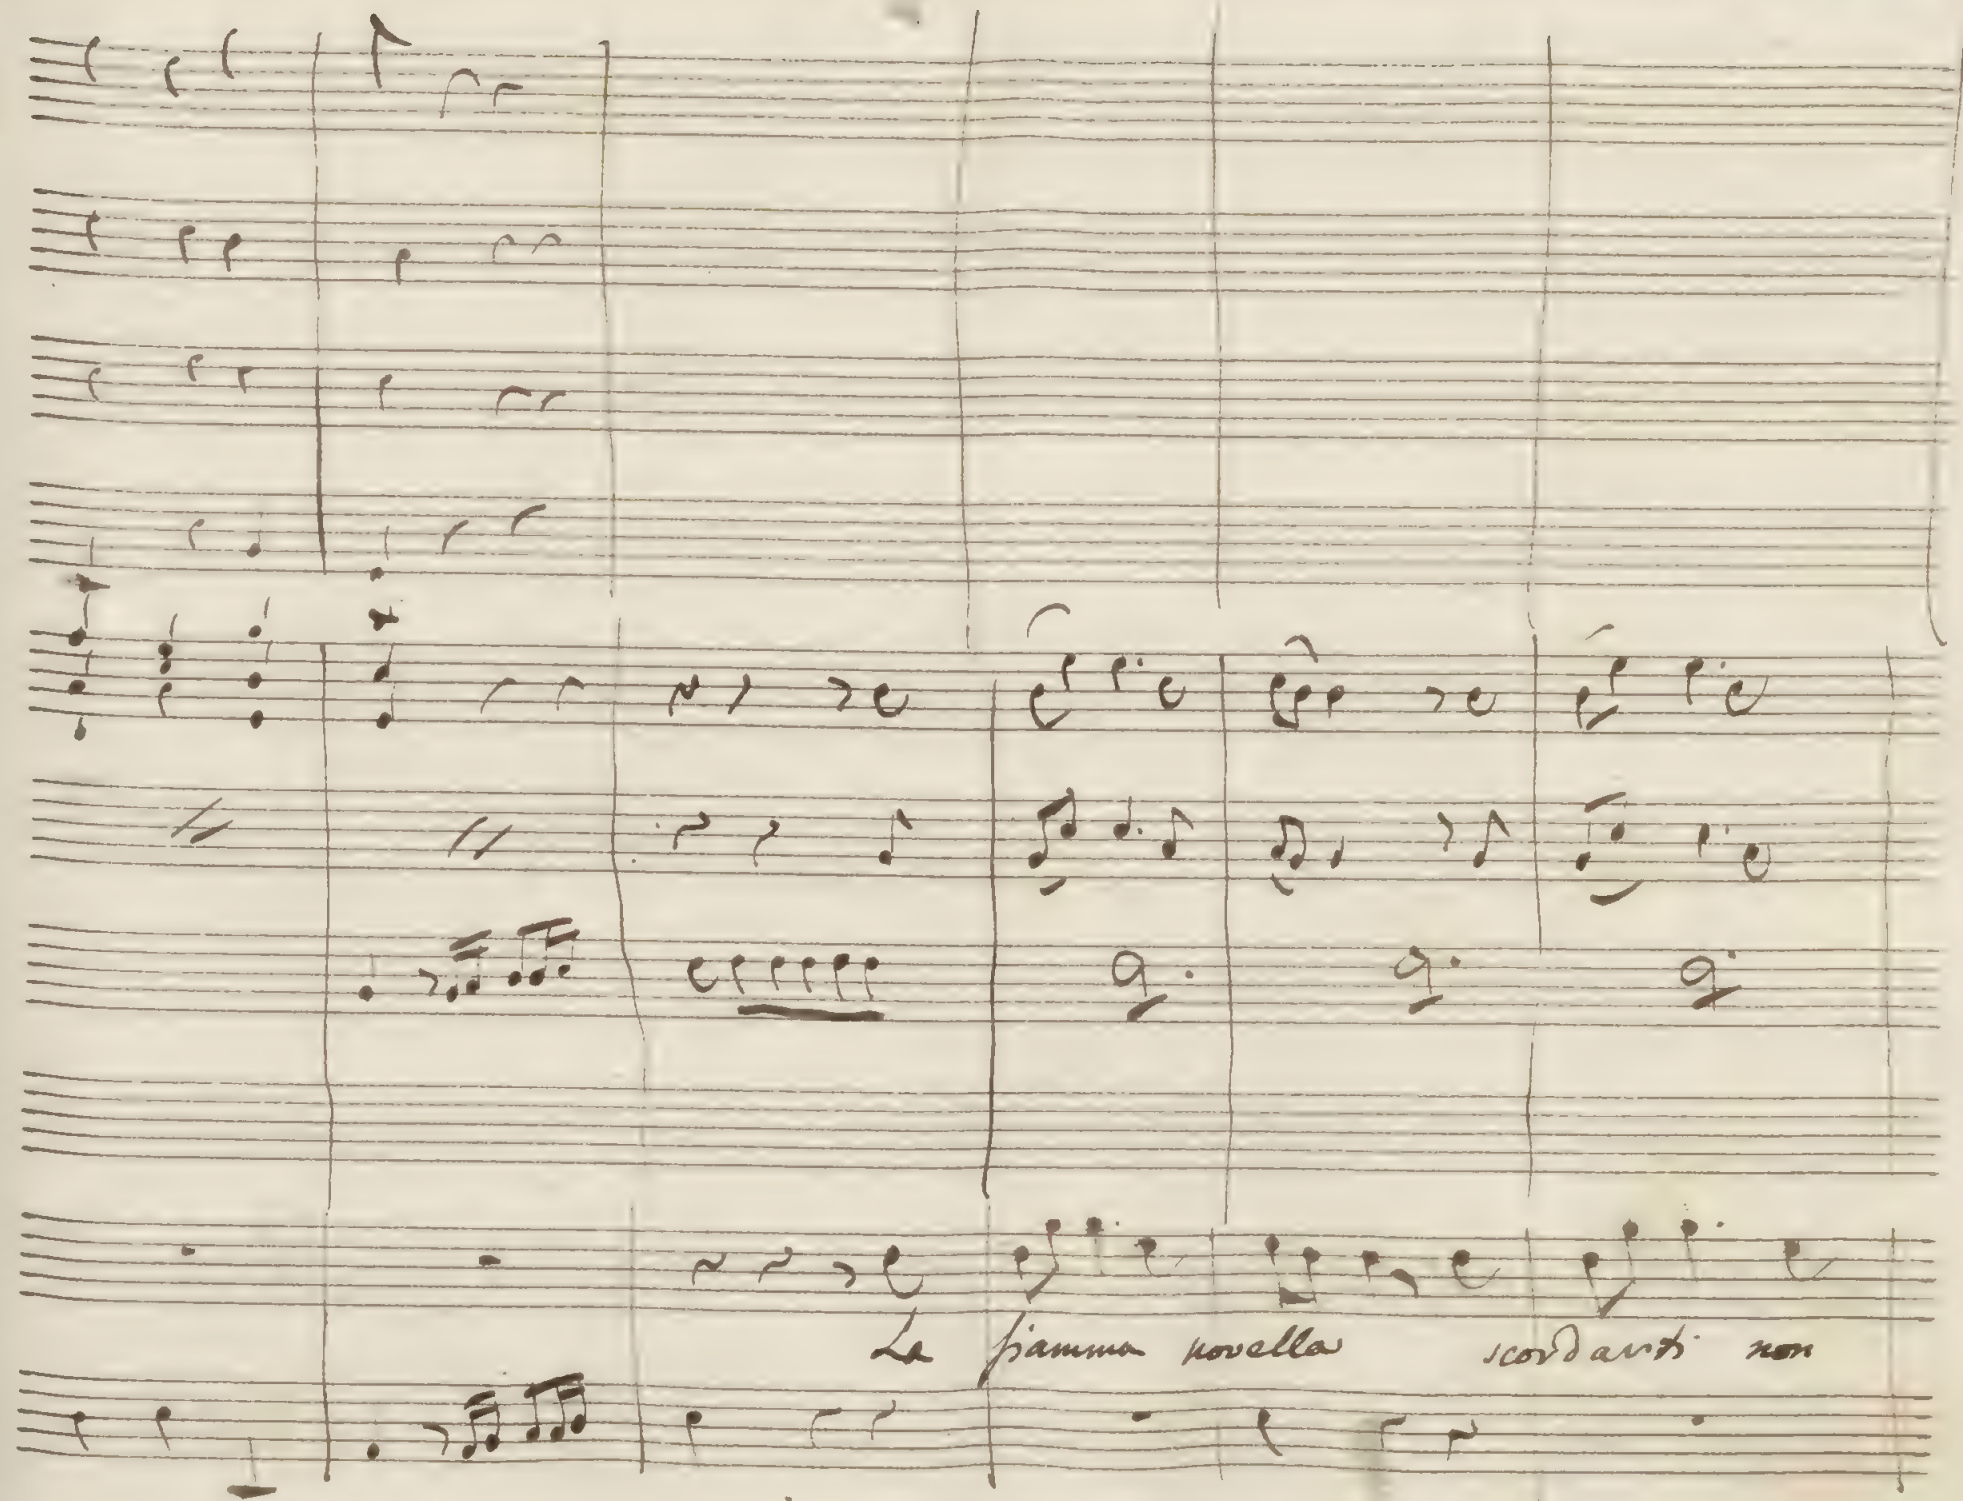 La fiamma novella scordarti non